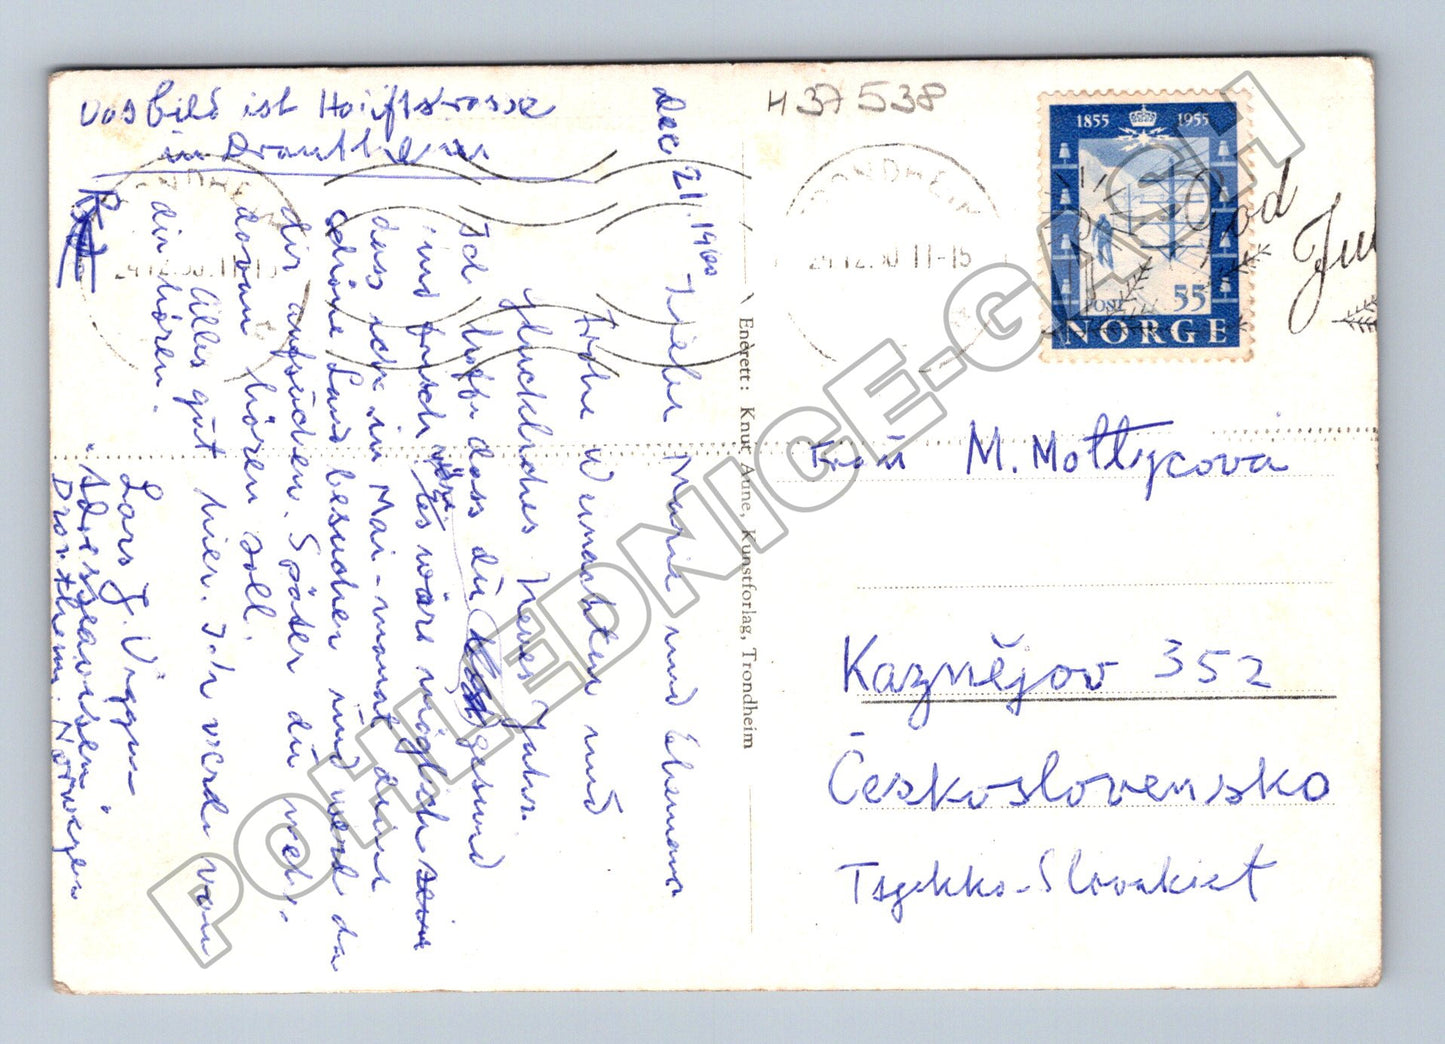 Das Bild ist Hauptstrasse
in Drontheim
Dec 21. 1960
Liebe Marie und Ehemann
Frohe Weinachten und
glückliches Neues Jahr.
Ich hoffe dass du gesund
und frisch
es wäre möglich
dass ich im Mai-monat dein
schöne Land besuchen und werd da
dir aufsuchen. Später du mehr
davon hören soll.
Alles gut hier. Ich werde von
dir hören.
Lars J. Viggen
"Adresseavisen"
Drontheim. Norwegen
H 37 538
TRONDHEIM
24.12.60.11-15
TRONDHEIM
24.12.60 11-15
God
Jul
1855 1955
POST 55
NORGE
Enerett: Knut Aune, Kunstforlag, Trondheim
Frau M. Moltycova
Kaznějov 352
Československo
Tsjekko-Slovakiet
POHLEDNICE-GASCH